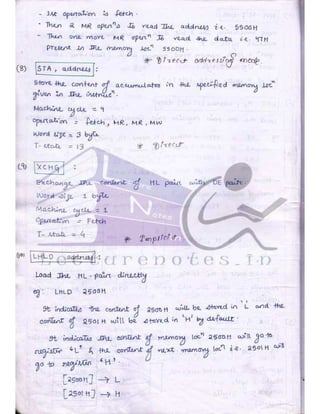 - 1st operation is fetch.
- Then 2 MR oprn's to read the address i.e. 5500H
- Then one more MR oprn to read the data i.e. 97H present in the memory locn 5500H.
* Direct addressing mode
(8) STA, address :
Store the content of accumulator in the specified memory locn given in the instrucn.
Machine cycle = 4
operation = fetch, MR, MR, MW
Word size = 3 byte
T- state = 13 * Direct
(9) XCHG :
Exchange the content of HL pair with DE pair.
Word size 1 byte
Machine cycle = 1
Operation = Fetch
T- state = 4 * Implicit
Notes
(10) LHLD address :
Load the HL-pair directly
eg: LHLD 2500H
It indicates the content of 2500H will be stored in 'L' and the content of 2501H will be stored in 'H' by default.
It indicates the content of memory locn 2500H will go to register 'L' & the content of next memory locn i.e. 2501H will go to register 'H'.
[2500H] → L
[2501H] → H